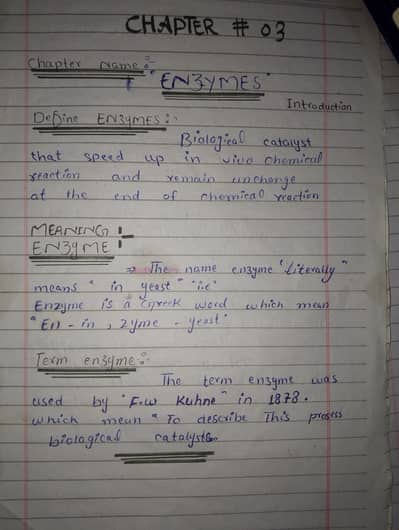 CHAPTER # 03
Chapter Name :-
"ENZYMES"
Introduction
Define ENZYMES :-
Biological catalyst
that speed up in vivo chemical
reaction and remain unchange
at the end of chemical reaction
MEANING :-
ENZYME
⇒ The name enzyme "Literally"
means "in yeast" "i.e"
Enzyme is a Greek word which mean
"En - in, zyme - yeast"
Term enzyme :-
The term enzyme was
used by "F.W Kuhne" in 1878.
which mean "To describe This prosess
biological catalysts.